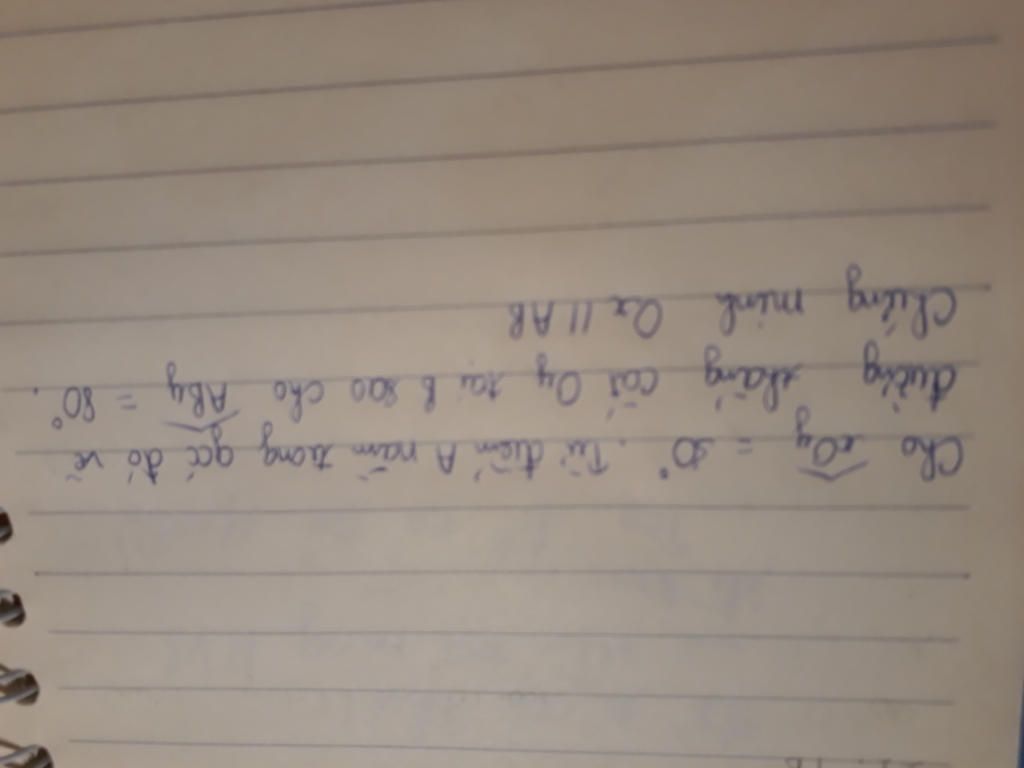 Cho xOy = 80°. Từ điểm A nằm trong góc đó vẽ
đường thẳng cắt Oy tại B sao cho ABy = 80°.
Chứng minh Ox // AB